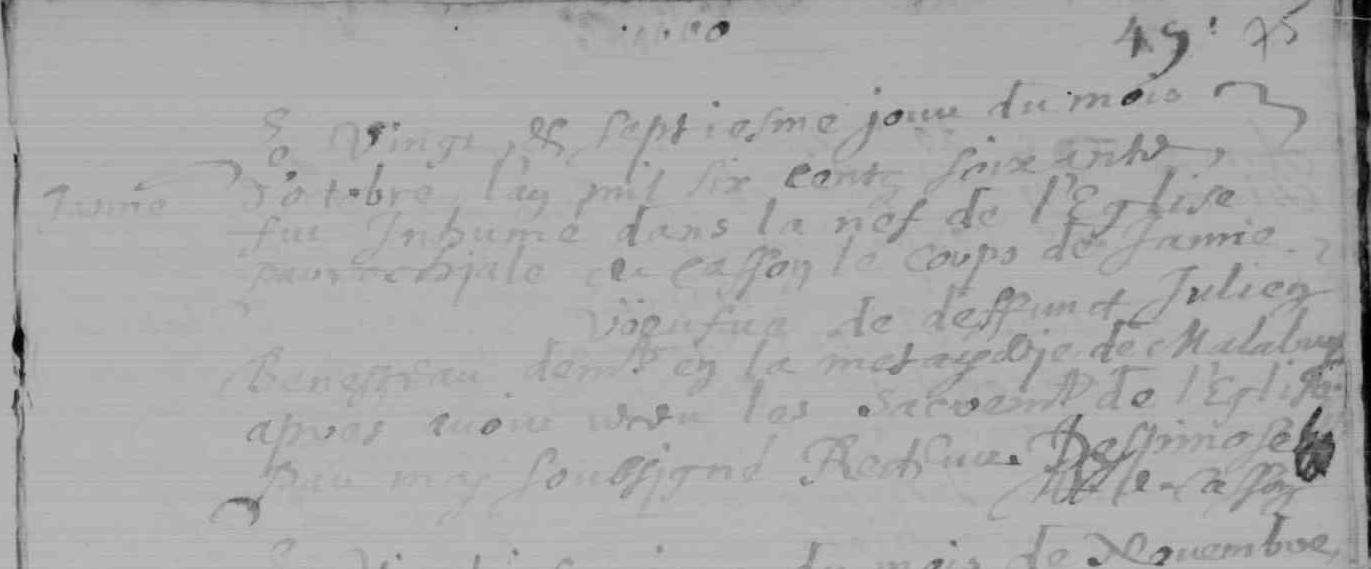 49. 75
Le Vingt & septiesme jour du mois
Janne d'octobre l'an mil six cents soixante,
fut Inhumé dans la nef de l'Eglise
parrochiale de Casson le corps de Janne
Vöeufue de deffunct Julien
Benestreau dem.t en la metayrie de
apres avoir receu les Sacrem.ts de l'Eglise
par moy soubsigné Recteur Despinose
de Casson
du mois de Novembre,